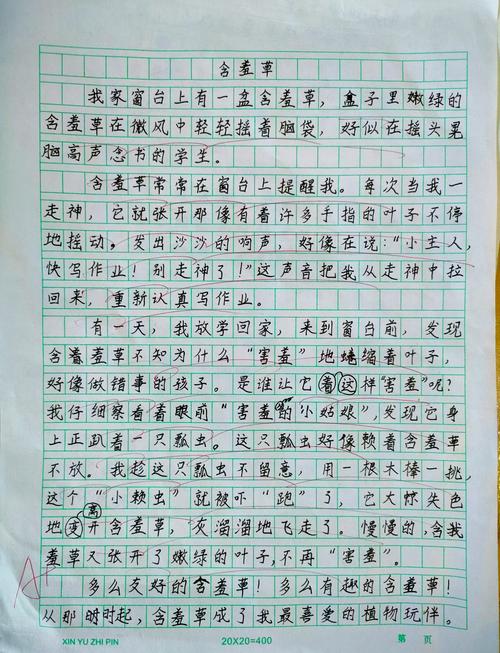 含羞草
我家窗台上有一盆含羞草，盒子里嫩绿的
含羞草在微风中轻轻摇着脑袋，好似在摇头晃
脑高声念书的学生。
含羞草常常在窗台上提醒我。每次当我一
走神，它就张开那像有着许多手指的叶子不停
地摇动。发出沙沙的响声，好像在说：“小主人，
快写作业！别走神了！”这声音把我从走神中拉
回来，重新认真写作业。
有一天，我放学回家，来到窗台前，发现
含着羞草不知为什么“害羞”地蜷缩着叶子，
好像做错事的孩子。是谁让它着这样“害羞”呢？
我仔细察看着眼前“害羞的”小姑娘”，发现它身
上正趴着一只瓢虫。这只瓢虫好像赖着含羞草
不放。我趁这只瓢虫不留意，用一根木棒一挑，
这个“小赖虫”就被吓“跑”了，它大惊失色
地离开含羞草，灰溜溜地飞走了。慢慢的，含我
羞草又张开了嫩绿的叶子，不再“害羞”。
多么友好的含羞草！多么有趣的含羞草！
从那时起，含羞草成了我最喜爱的植物玩伴。
A+
XIN YU ZHI PIN
20X20=400
第 页